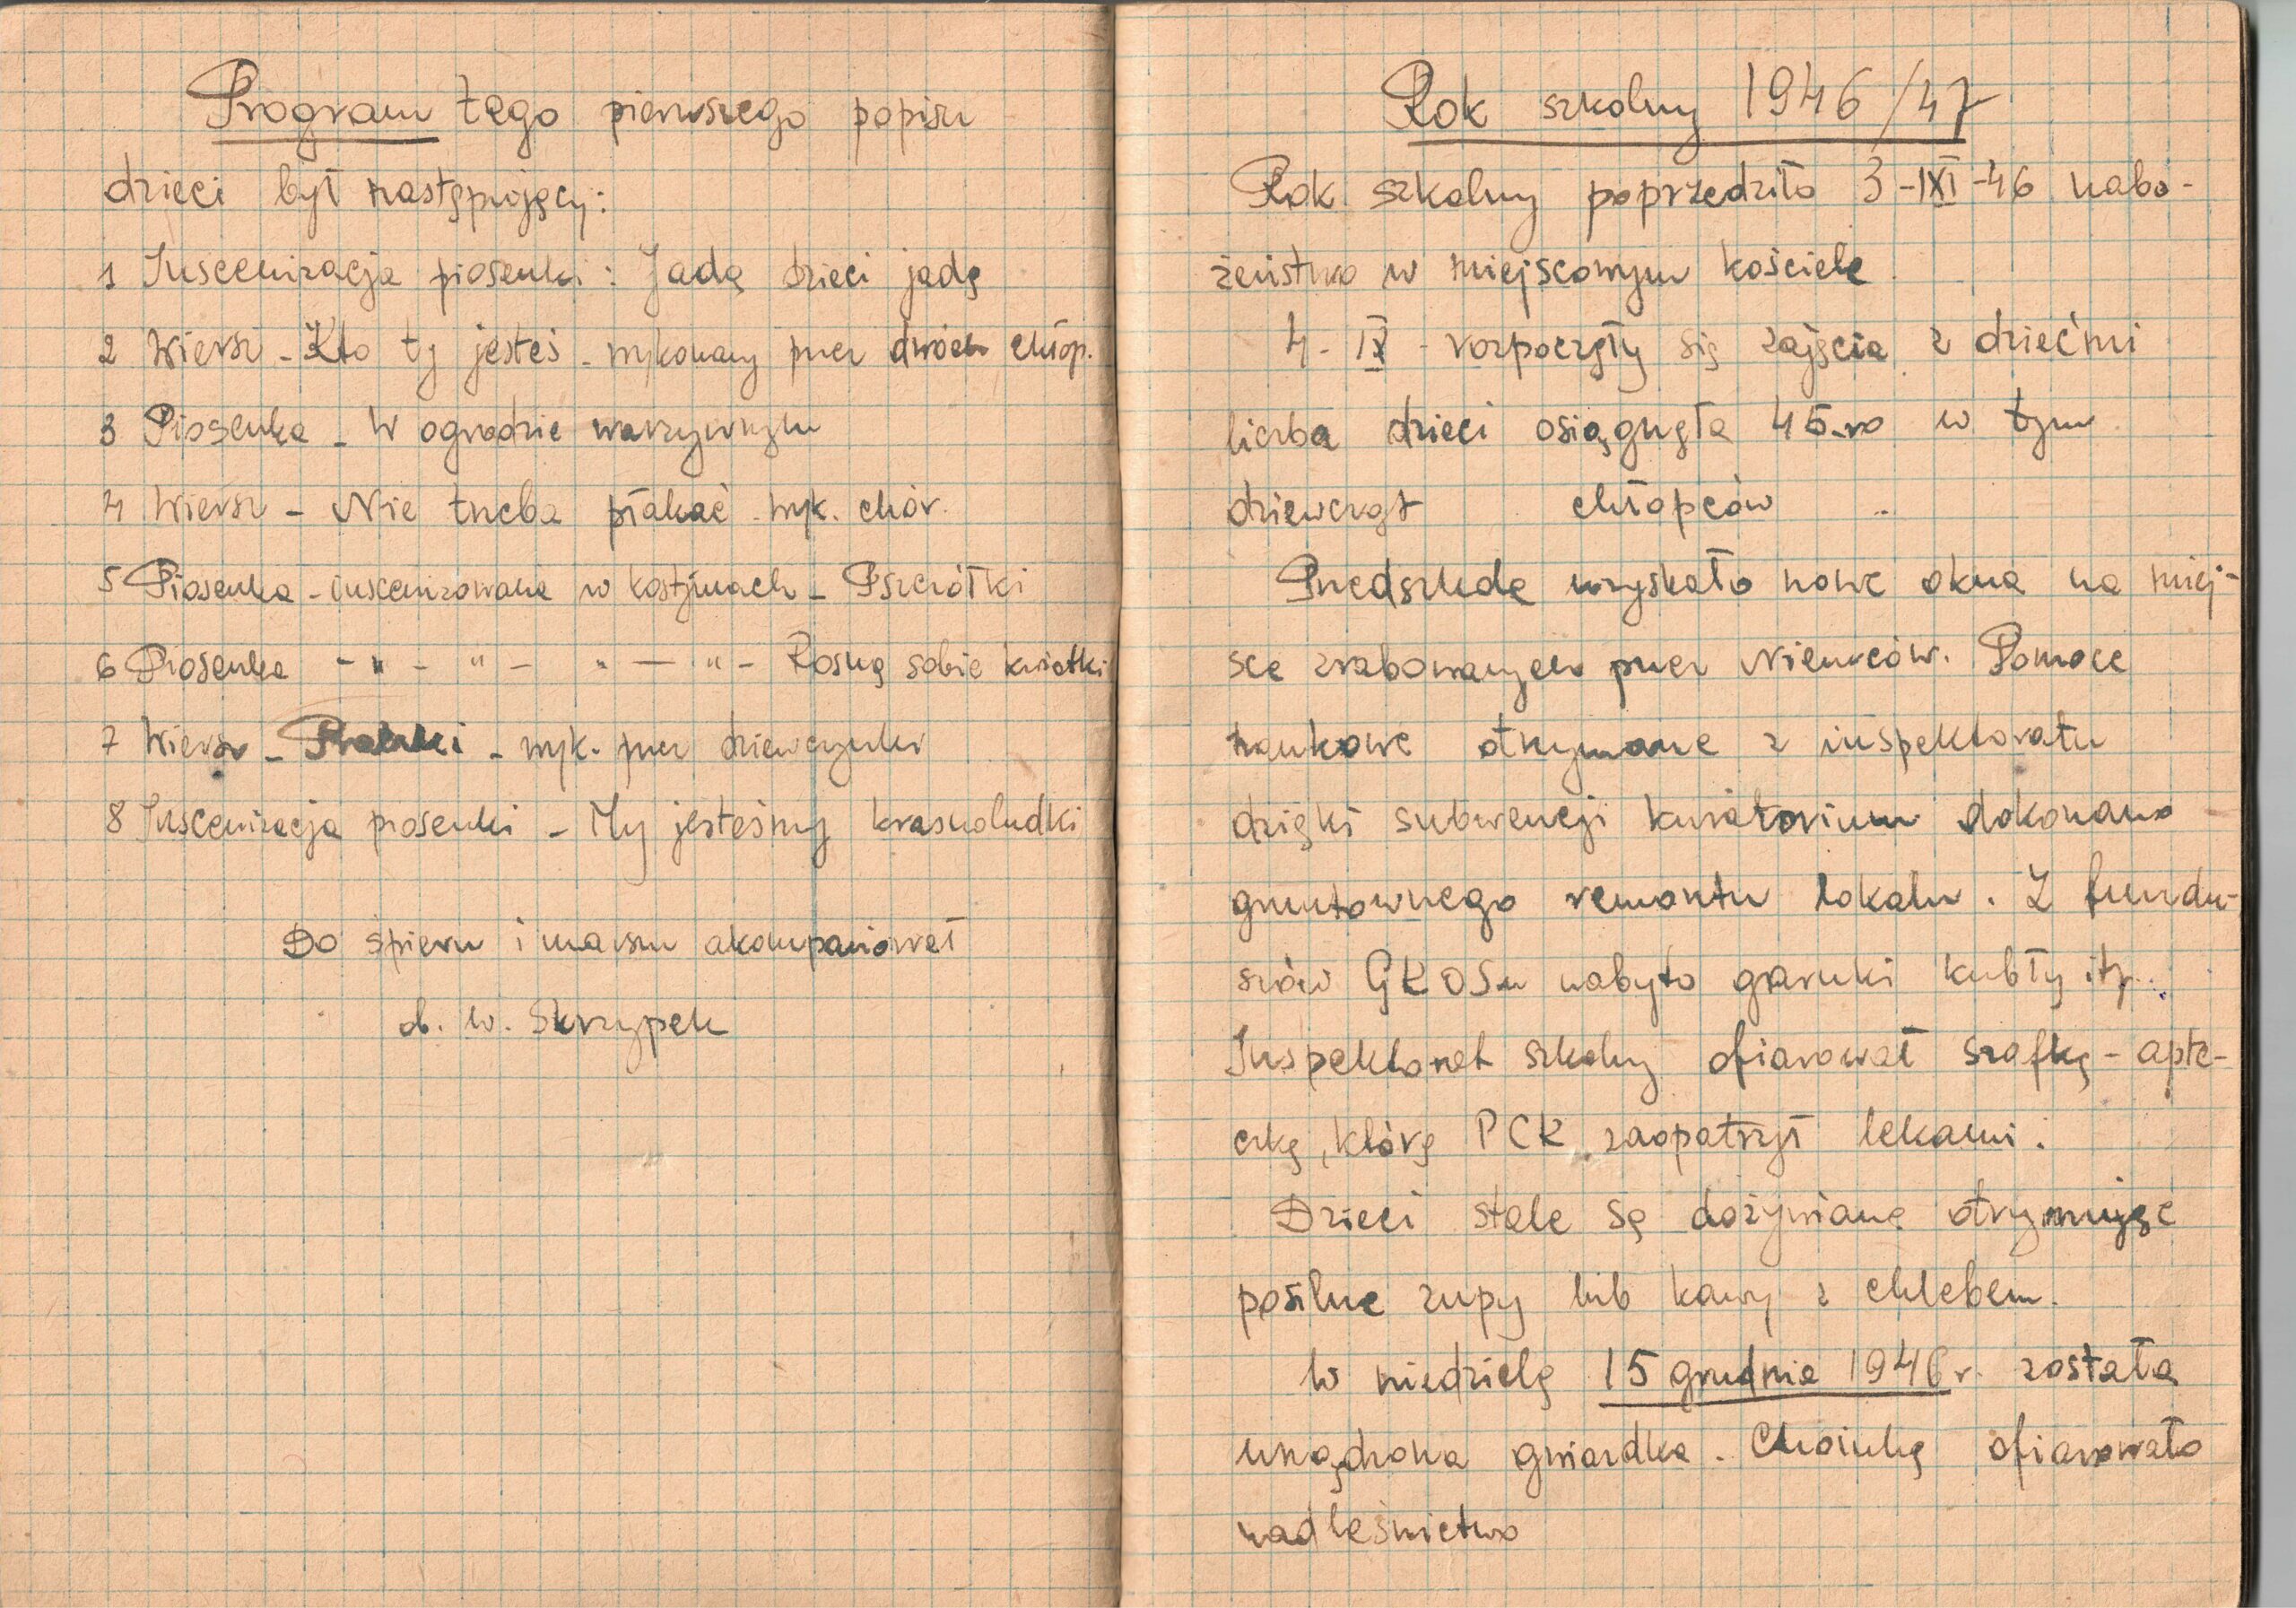 Program tego pierwszego popisu
dzieci był następujący:
1 Inscenizacja piosenki: Jadą dzieci jadą
2 Wiersz - Kto ty jesteś - wykonany przez dwóch chłop.
3 Piosenka - W ogrodzie warzywnym
4 Wiersz - Nie trzeba płakać - wyk. chór.
5 Piosenka - inscenizowana w kostjumach - Pszczółki
6 Piosenka - " - " - " - " - Rosną sobie kwiatki
7 Wiersz - Praczki - wyk. przez dziewczynki
8 Inscenizacja piosenki - My jesteśmy krasnoludki
Do śpiewu i marszu akompaniował
d. w. Skrzypek
Rok szkolny 1946/47
Rok szkolny poprzedziło 3-IX-46 nabo-
żeństwo w miejscowym kościele
4-IX- rozpoczęły się zajęcia z dziećmi
liczba dzieci osiągnęła 45-ro w tym
dziewcząt chłopców ..
Przedszkole uzyskało nowe okna na miej-
sce zrabowanych przez Niemców. Pomoce
naukowe otrzymane z inspektoratu
dzięki subwencji kuratorium dokonano
gruntownego remontu lokalu. Z fundu-
szów GKOSu nabyto garnki kubły itp..
Inspektorat szkolny ofiarował szafkę-apte-
czkę, którą PCK zaopatrzył lekami.
Dzieci stale są dożywiane otrzymując
posilne zupy lub kawy z chlebem.
W niedzielę 15 grudnia 1946r. została
urządzona gwiazdka. Choinkę ofiarowało
nadleśnictwo